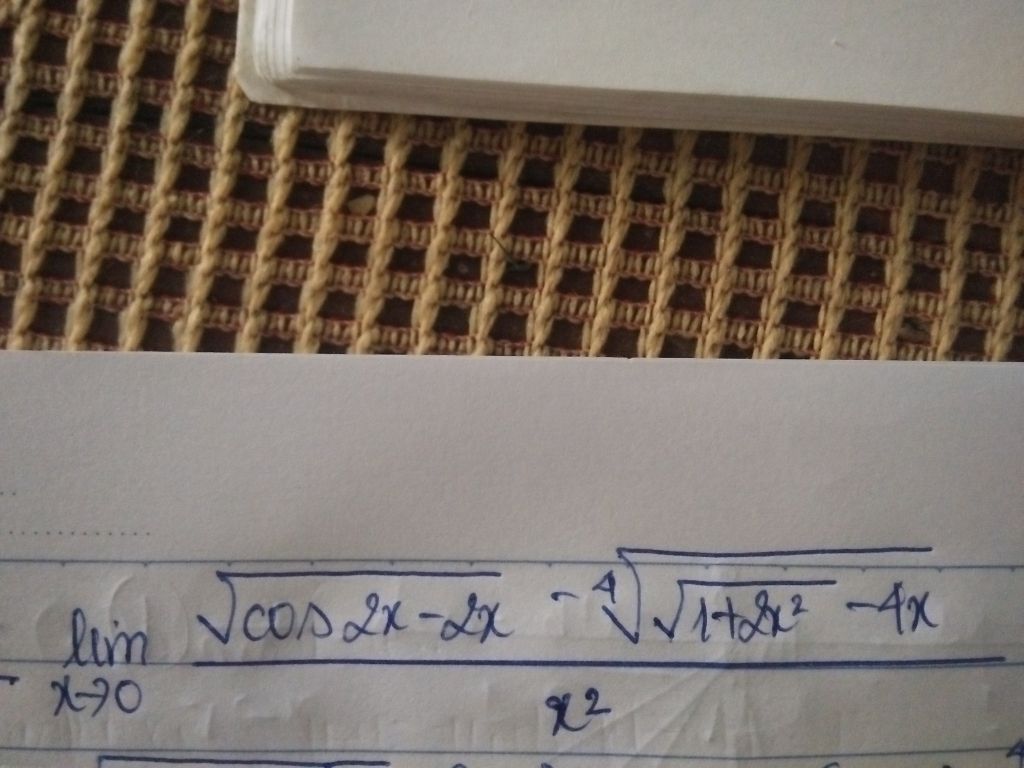 lim x→0 (√(cos 2x - 2x) - ⁴√(√(1+2x²) - 4x)) / x²